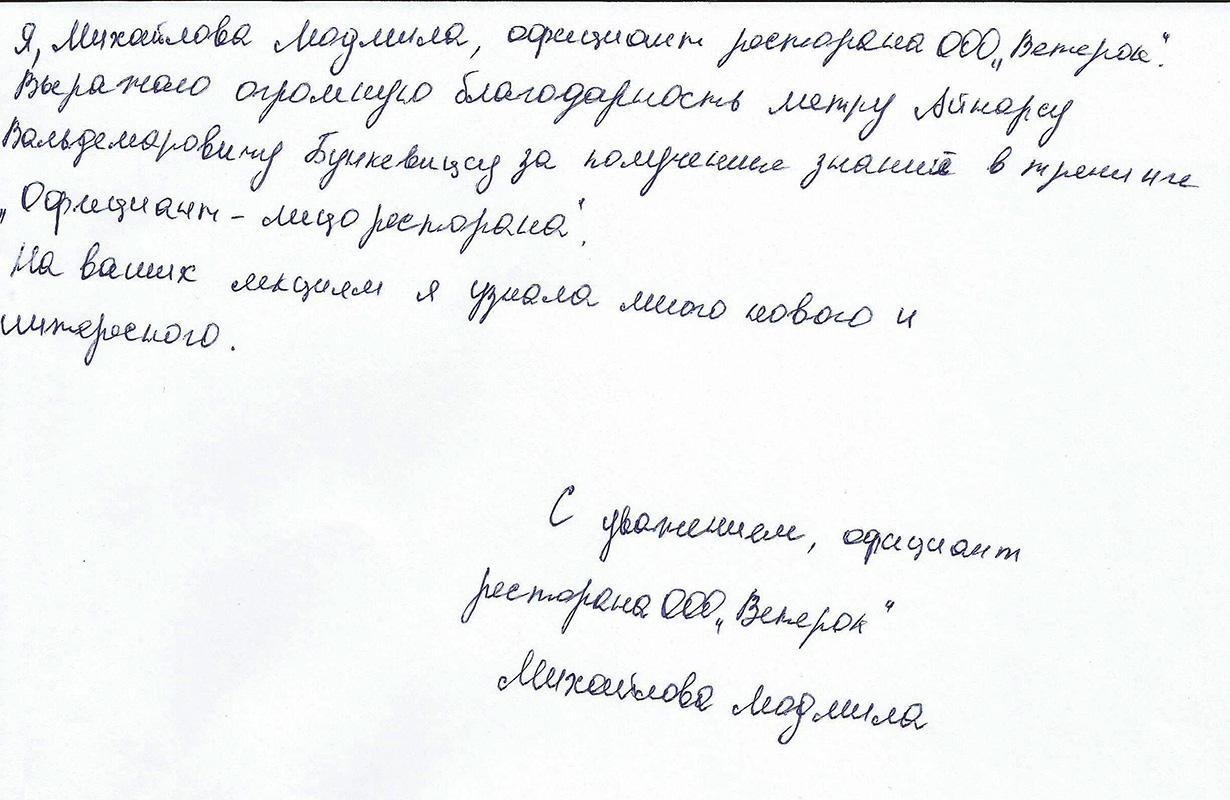 Я, Михайлова Людмила, официант ресторана ООО „Ветерок“.
Выражаю огромную благодарность мэтру Айнарсу
Вальдемаровичу Бункевицсу за получение знаний в тренинге
„Официант – лицо ресторана“.
На ваших лекциям я узнала много нового и
интересного.
С уважением, официант
ресторана ООО „Ветерок“
Михайлова Людмила